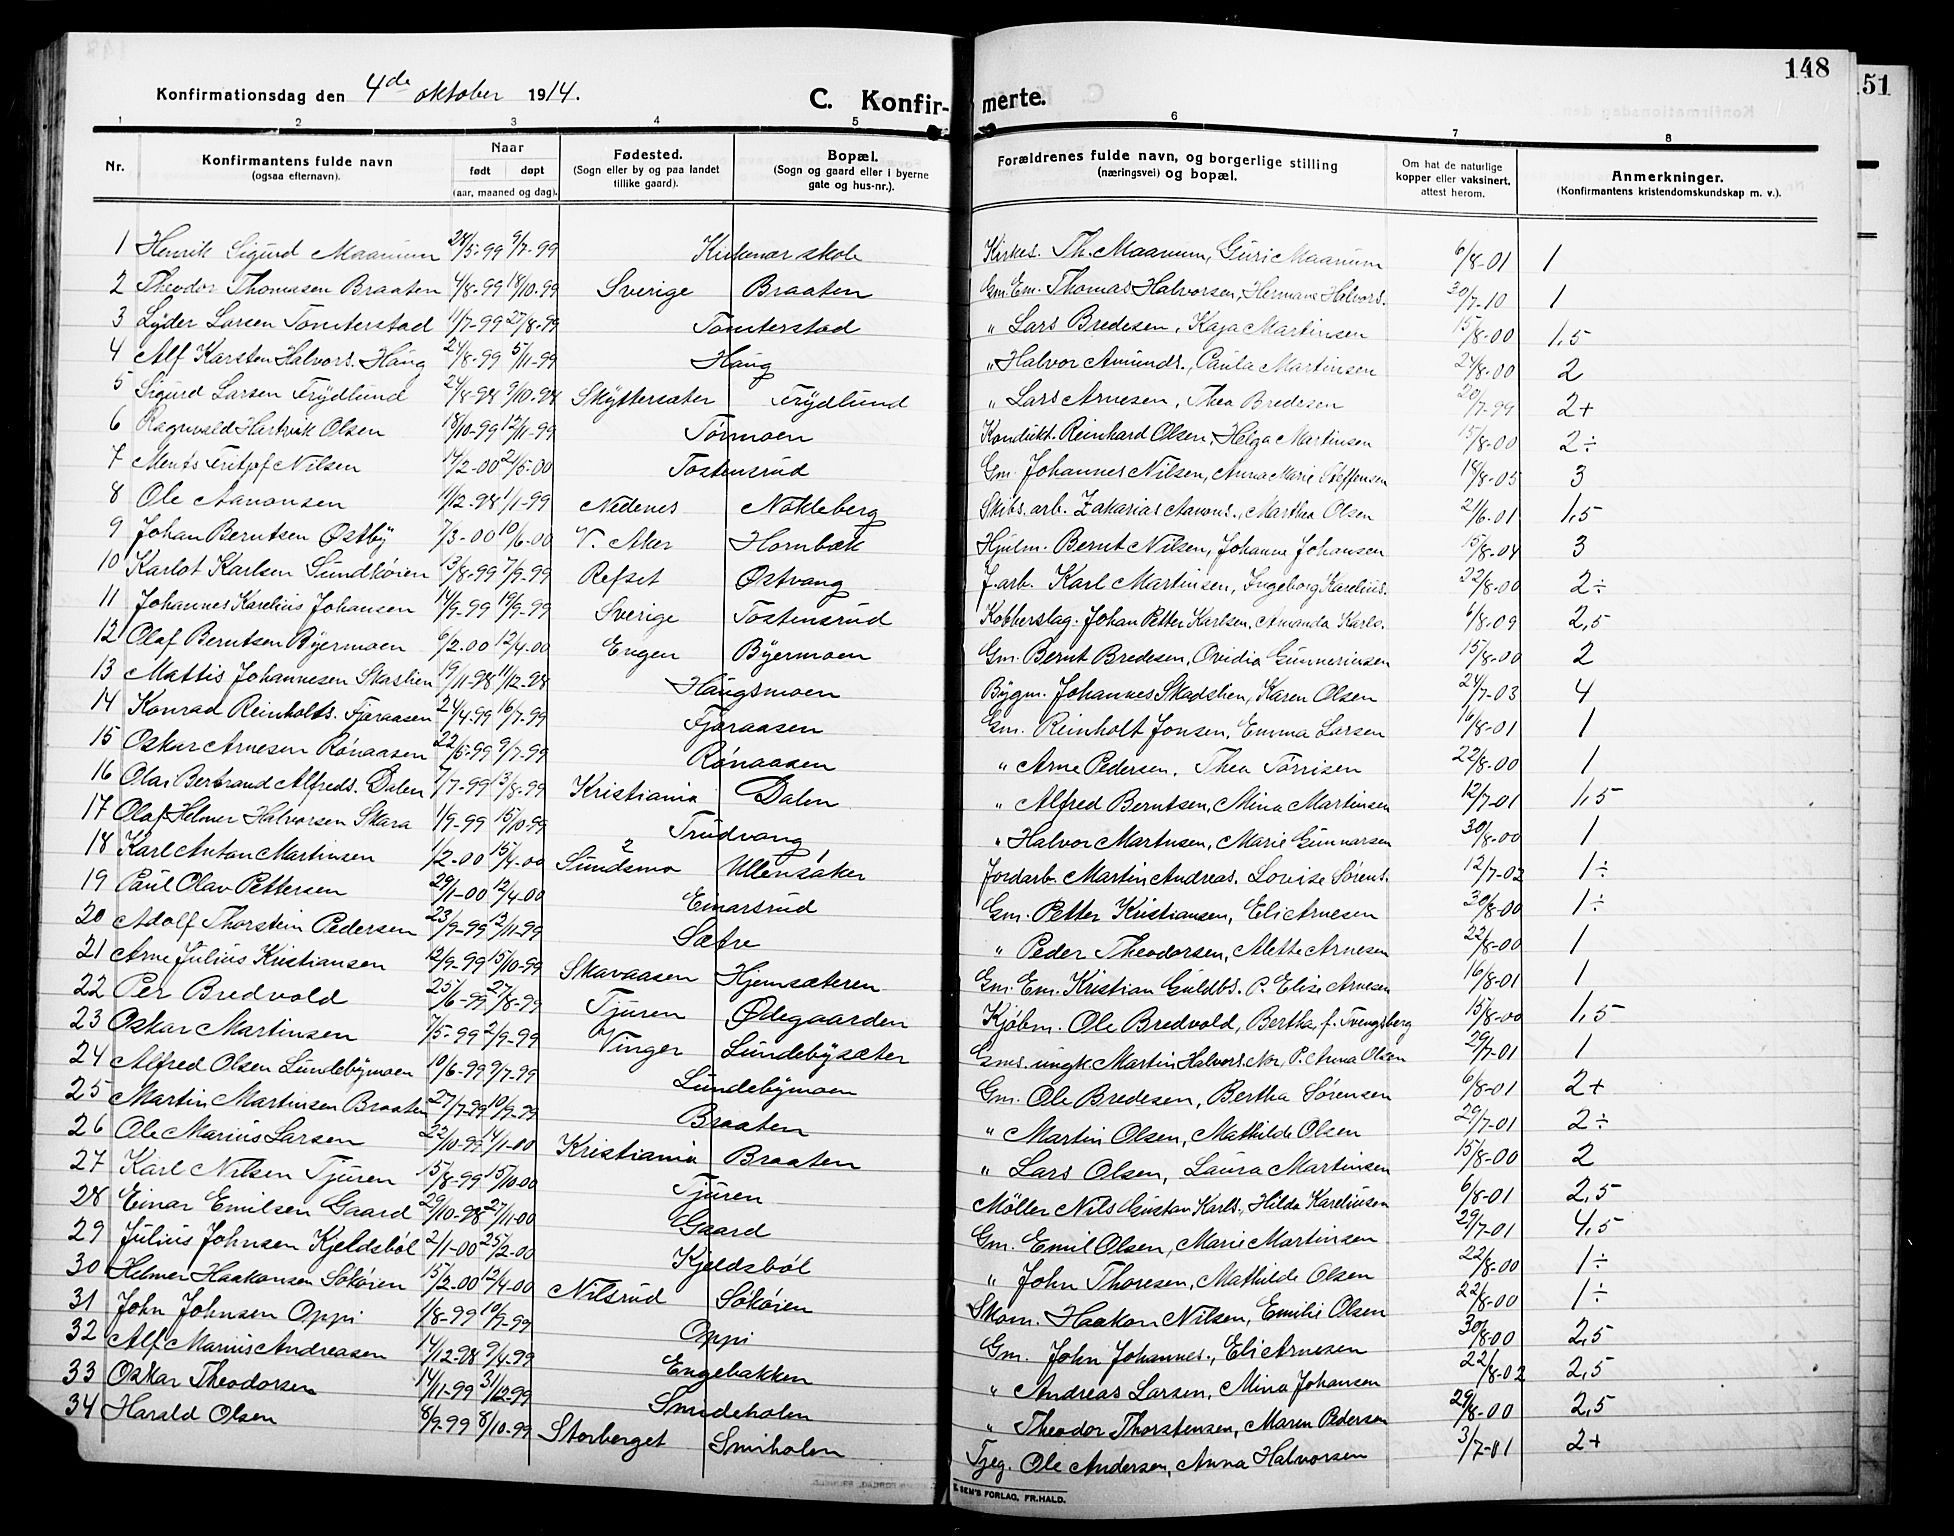 148
51
Konfirmationsdag den 4de oktober 1914.
C. Konfirmerte.
1 2 3 4 5 6 7 8
Nr.
Konfirmantens fulde navn
(ogsaa efternavn).
Naar
født døpt
(aar, maaned og dag).
Fødested.
(Sogn eller by og paa landet
tillike gaard).
Bopæl.
(Sogn og gaard eller i byerne
gate og hus-nr.).
Forældrenes fulde navn, og borgerlige stilling
(næringsvei) og bopæl.
Om hat de naturlige
kopper eller vaksinert,
attest herom.
Anmerkninger.
(Konfirmantens kristendomskundskap m. v.).
1 Henrik Sigurd Maarum 24/5-99 9/7-99 Kirkenær skole Kirkes. Th. Maarum, Guri Maarum 6/8-01 1
2 Theodor Thomasen Braaten 4/8-99 18/10-99 Sverige Braaten Gm. Em. Thomas Halvorsen, Hermana Halvors. 30/7-10 1
3 Lyder Larsen Tomterstad 11/7-99 27/8-99 Tomterstad " Lars Bredesen, Kaja Martinsen 15/8-00 1,5
4 Alf Karsten Halvors. Haug 24/8-99 5/11-99 Haug " Halvor Amunds., Paula Martinsen 24/8-00 2
5 Sigurd Larsen Frydlund 24/8-98 9/10-98 Skyttersæter Frydlund " Lars Arnesen, Thea Bredesen 20/7-99 2+
6 Ragnvald Hartvik Olsen 18/10-99 12/11-99 Tørmoen Kondukt. Reinhard Olsen, Helga Martinsen 15/8-00 2÷
7 Ments Fritjof Nilsen 17/2-00 2/5-00 Tostensrud Gm. Johannes Nilsen, Anna Marie Steffensen 18/8-05 3
8 Ole Aanonsen 11/12-98 1/1-99 Nedenes Nokleberg Skibs. arb. Zakarias Aanons., Martha Olsen 21/6-01 1,5
9 Johan Berntsen Østby 7/3-00 10/6-00 V. Aker Hornbæk Hjulm. Bernt Nilsen, Johanne Johansen 15/8-04 3
10 Karlot Karlsen Sundkøien 13/8-99 7/9-99 Refset Østvang J. arb. Karl Martinsen, Ingeborg Karelius. 22/8-00 2÷
11 Johannes Karelius Johansen 14/9-99 19/9-99 Sverige Tostensrud Kobberslag. Johan Petter Karlsen, Amanda Karls. 6/8-09 2,5
12 Olaf Berntsen Byermoen 9/2-00 12/4-00 Engen Byermoen Gm. Bernt Bredesen, Ovidia Gunneriusen 15/8-00 2
13 Mattis Johannesen Skaslien 19/11-98 11/12-98 Haugsmoen Bygm. Johannes Skadslien, Karen Olsen 24/7-03 4
14 Konrad Reinholts. Fjæraasen 24/4-99 16/7-99 Fjæraasen Gm. Reinholt Jonsen, Emma Larsen 16/8-01 1
15 Oskar Arnesen Rønaasen 22/5-99 9/7-99 Rønaasen " Arne Pedersen, Thea Tørrisen 22/8-00 1
16 Olai Bertrand Alfreds. Dalen 7/7-99 13/8-99 Kristiania Dalen " Alfred Berntsen, Mina Martinsen 12/7-01 1,5
17 Olaf Helmer Halvorsen Skara 1/9-99 15/10-99 Trudvang " Halvor Martnsen, Marie Gunnarsen 30/8-00 1
18 Karl Anton Martinsen 1/2-00 15/4-00 Sundsmo Ullensaker Jordarb. Martin Andreas. Lovise Sørens. 12/7-02 1÷
19 Paul Olav Pettersen 29/1-00 12/4-00 Einarsrud Gm. Petter Kristiansen, Eli Arnesen 30/8-00 1÷
20 Adolf Thorstein Pedersen 23/9-99 12/11-99 Sætre " Peder Theodorsen, Alette Arnesen 22/8-00 1
21 Arne Julius Kristiansen 12/9-99 15/10-99 Skavaasen Hjemsæteren Gm. Em. Kristian Guldbs. P. Elise Arnesen 16/8-01 1
22 Per Bredvold 25/6-99 27/8-99 Tjuren Ødegaarden Kjøbm. Ole Bredvold, Bertha, f. Tvengsberg 15/8-00 1,5
23 Oskar Martinsen 7/5-99 2/9-99 Vinger Lundebysæter Gms. ungk. Martin Halvors. Nor, P. Anna Olsen 29/7-01 1
24 Alfred Olsen Lundebymoen 10/6-99 9/7-99 Lundebymoen Gm. Ole Bredesen, Bertha Sørensen 6/8-01 2+
25 Martin Martinsen Braaten 27/7-99 10/9-99 Braaten " Martin Olsen, Mathilde Olsen 29/7-01 2÷
26 Ole Marius Larsen 22/10-99 14/1-00 Kristiania Braaten " Lars Olsen, Laura Martinsen 15/8-00 2
27 Karl Nilsen Tjuren 15/8-99 15/10-00 Tjuren Møller Nils Gustav Karls., Hilda Kareliusen 6/8-01 2,5
28 Einar Emilsen Gaard 29/10-98 27/11-00 Gaard Gm. Emil Olsen, Marie Martinsen 29/7-01 4,5
29 Julius Johnsen Kjeldsbøl 2/1-00 25/2-00 Kjeldsbøl " John Thoresen, Mathilde Olsen 22/8-00 1÷
30 Helmer Haakonsen Søkøien 15/2-00 12/4-00 Nilsrud Søkøien Skom. Haakon Nilsen, Emilie Olsen 22/8-00 1÷
31 John Johnsen Oppi 1/8-99 10/9-99 Oppi Gm. John Johannes., Eli Arnesen 30/8-00 2,5
32 Alf Marius Andreasen 14/12-98 9/4-99 Engebakken " Andreas Larsen, Mina Johansen 22/8-02 2,5
33 Oskar Theodorsen 14/11-99 31/12-99 Smideholen " Theodor Thorstensen, Maren Pedersen 29/8-00 2,5
34 Harald Olsen 8/9-99 8/10-99 Storberget Smiholen Tjeg. Ole Andersen, Anna Halvorsen 3/7-01 2+
SEM'S FORLAG, FR.HALD.